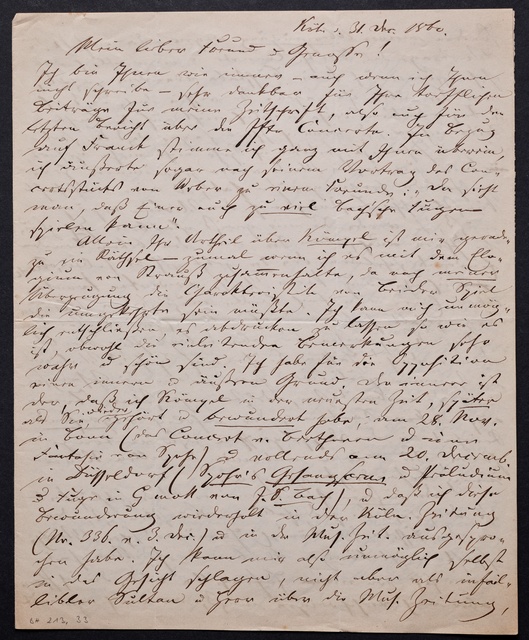 Köln d. 31. Dec. 1860.
Mein lieber Freund u Genosse!
Ich bin Ihnen wie immer – auch wenn ich Ihnen
nicht schreibe – sehr dankbar für Ihre trefflichen
Beiträge für meine Zeitschrift, also auch für den
letzten Bericht über die Concerte. In Bezug
auf stimme ich ganz mit Ihnen überein,
ich äußerte sogar nach seinem Vortrag des Con-
certstücks von Weber zu einem Freunde: „Da sieht
man, daß Einer auch zu viel Bachsche Fugen
spielen kann“.
Allein Ihr Urtheil über Kömpel ist mir gerade-
zu ein Räthsel – zumal wenn ich es mit dem Elo-
gium von Strauß zusammenhalte, da nach meiner
Überzeugung die Charakteristik von beider Spiel
die umgekehrte sein müßte. Ich kann mich unmög-
lich entschließen es abdrucken zu lassen so wie es
ist, obwohl die einleitenden Bemerkungen sehr
wahr u schön sind. Ich habe für die Opposition
einen innern u äußern Grund. Der innere ist
der, daß ich Kömpel in der neuesten Zeit, später
als Sie, gehört u bewundert habe, am 28. Nov.
in Bonn (das Concert v. Beethoven u eine
Fantasie von Spohr) u vollends am 20. Decemb.
in Düsseldorf (Spohr's Gesangscene u Präludium
u Fuge in G moll von J. S. Bach), u daß ich diese
Bewunderung wiederholt in der Köln. Zeitung
(Nr. 336. v. 3. Dec.) u in der Mus. Zeit. ausgespro-
chen habe. Ich kann mir also unmöglich selbst
in das Gesicht schlagen, nicht aber als infail-
libler Sultan u Herr über die Mus. Zeitung,
64 213, 33